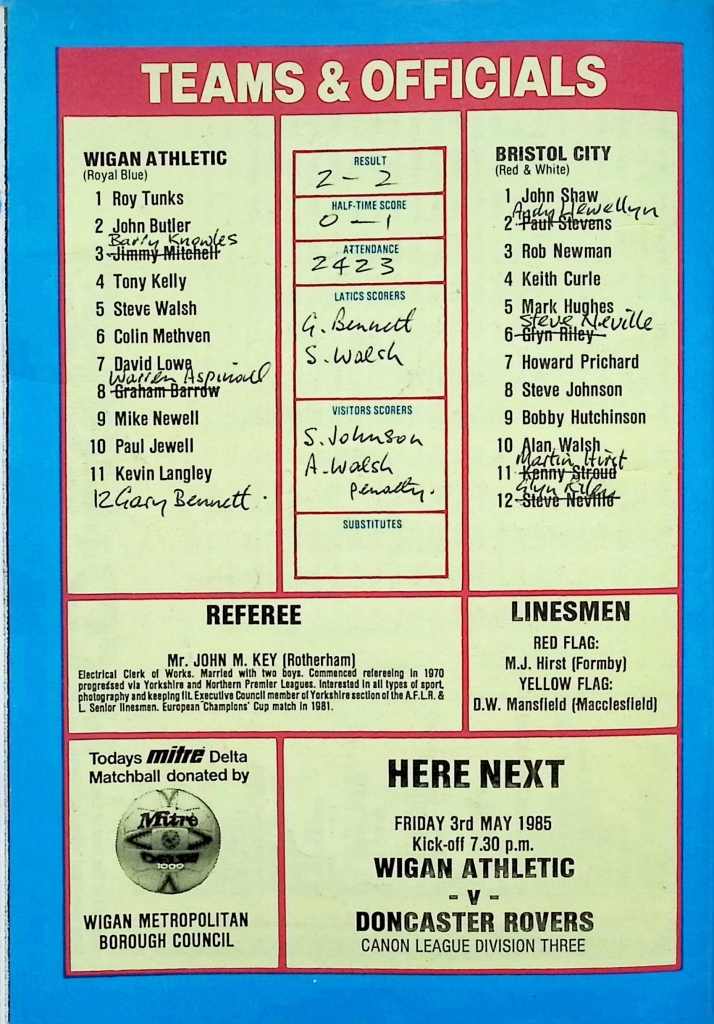 TEAMS & OFFICIALS
WIGAN ATHLETIC
(Royal Blue)
1 Roy Tunks
2 John Butler
Barry Knowles
3 Jimmy Mitchell
4 Tony Kelly
5 Steve Walsh
6 Colin Methven
7 David Lowe
Warren Aspinall
8 Graham Barrow
9 Mike Newell
10 Paul Jewell
11 Kevin Langley
12 Gary Bennett.
RESULT
2-2
HALF-TIME SCORE
0-1
ATTENDANCE
2423
LATICS SCORERS
G. Bennett
S. Walsh
VISITORS SCORERS
S. Johnson
A. Walsh
Penalty.
SUBSTITUTES
BRISTOL CITY
(Red & White)
1 John Shaw
Andy Llewellyn
2 Paul Stevens
3 Rob Newman
4 Keith Curle
5 Mark Hughes
Steve Neville
6 Glyn Riley
7 Howard Prichard
8 Steve Johnson
9 Bobby Hutchinson
10 Alan Walsh
Martin Hirst
11 Kenny Stroud
Glyn Riley
12 Steve Neville
REFEREE
Mr. JOHN M. KEY (Rotherham)
Electrical Clerk of Works. Married with two boys. Commenced refereeing in 1970
progressed via Yorkshire and Northern Premier Leagues. Interested in all types of sport,
photography and keeping fit. Executive Council member of Yorkshire section of the A.F.L.R. &
L. Senior linesmen. European Champions' Cup match in 1981.
LINESMEN
RED FLAG:
M.J. Hirst (Formby)
YELLOW FLAG:
D.W. Mansfield (Macclesfield)
Todays mitre Delta
Matchball donated by
Mitre
DELTA
1000
WIGAN METROPOLITAN
BOROUGH COUNCIL
HERE NEXT
FRIDAY 3rd MAY 1985
Kick-off 7.30 p.m.
WIGAN ATHLETIC
- V -
DONCASTER ROVERS
CANON LEAGUE DIVISION THREE